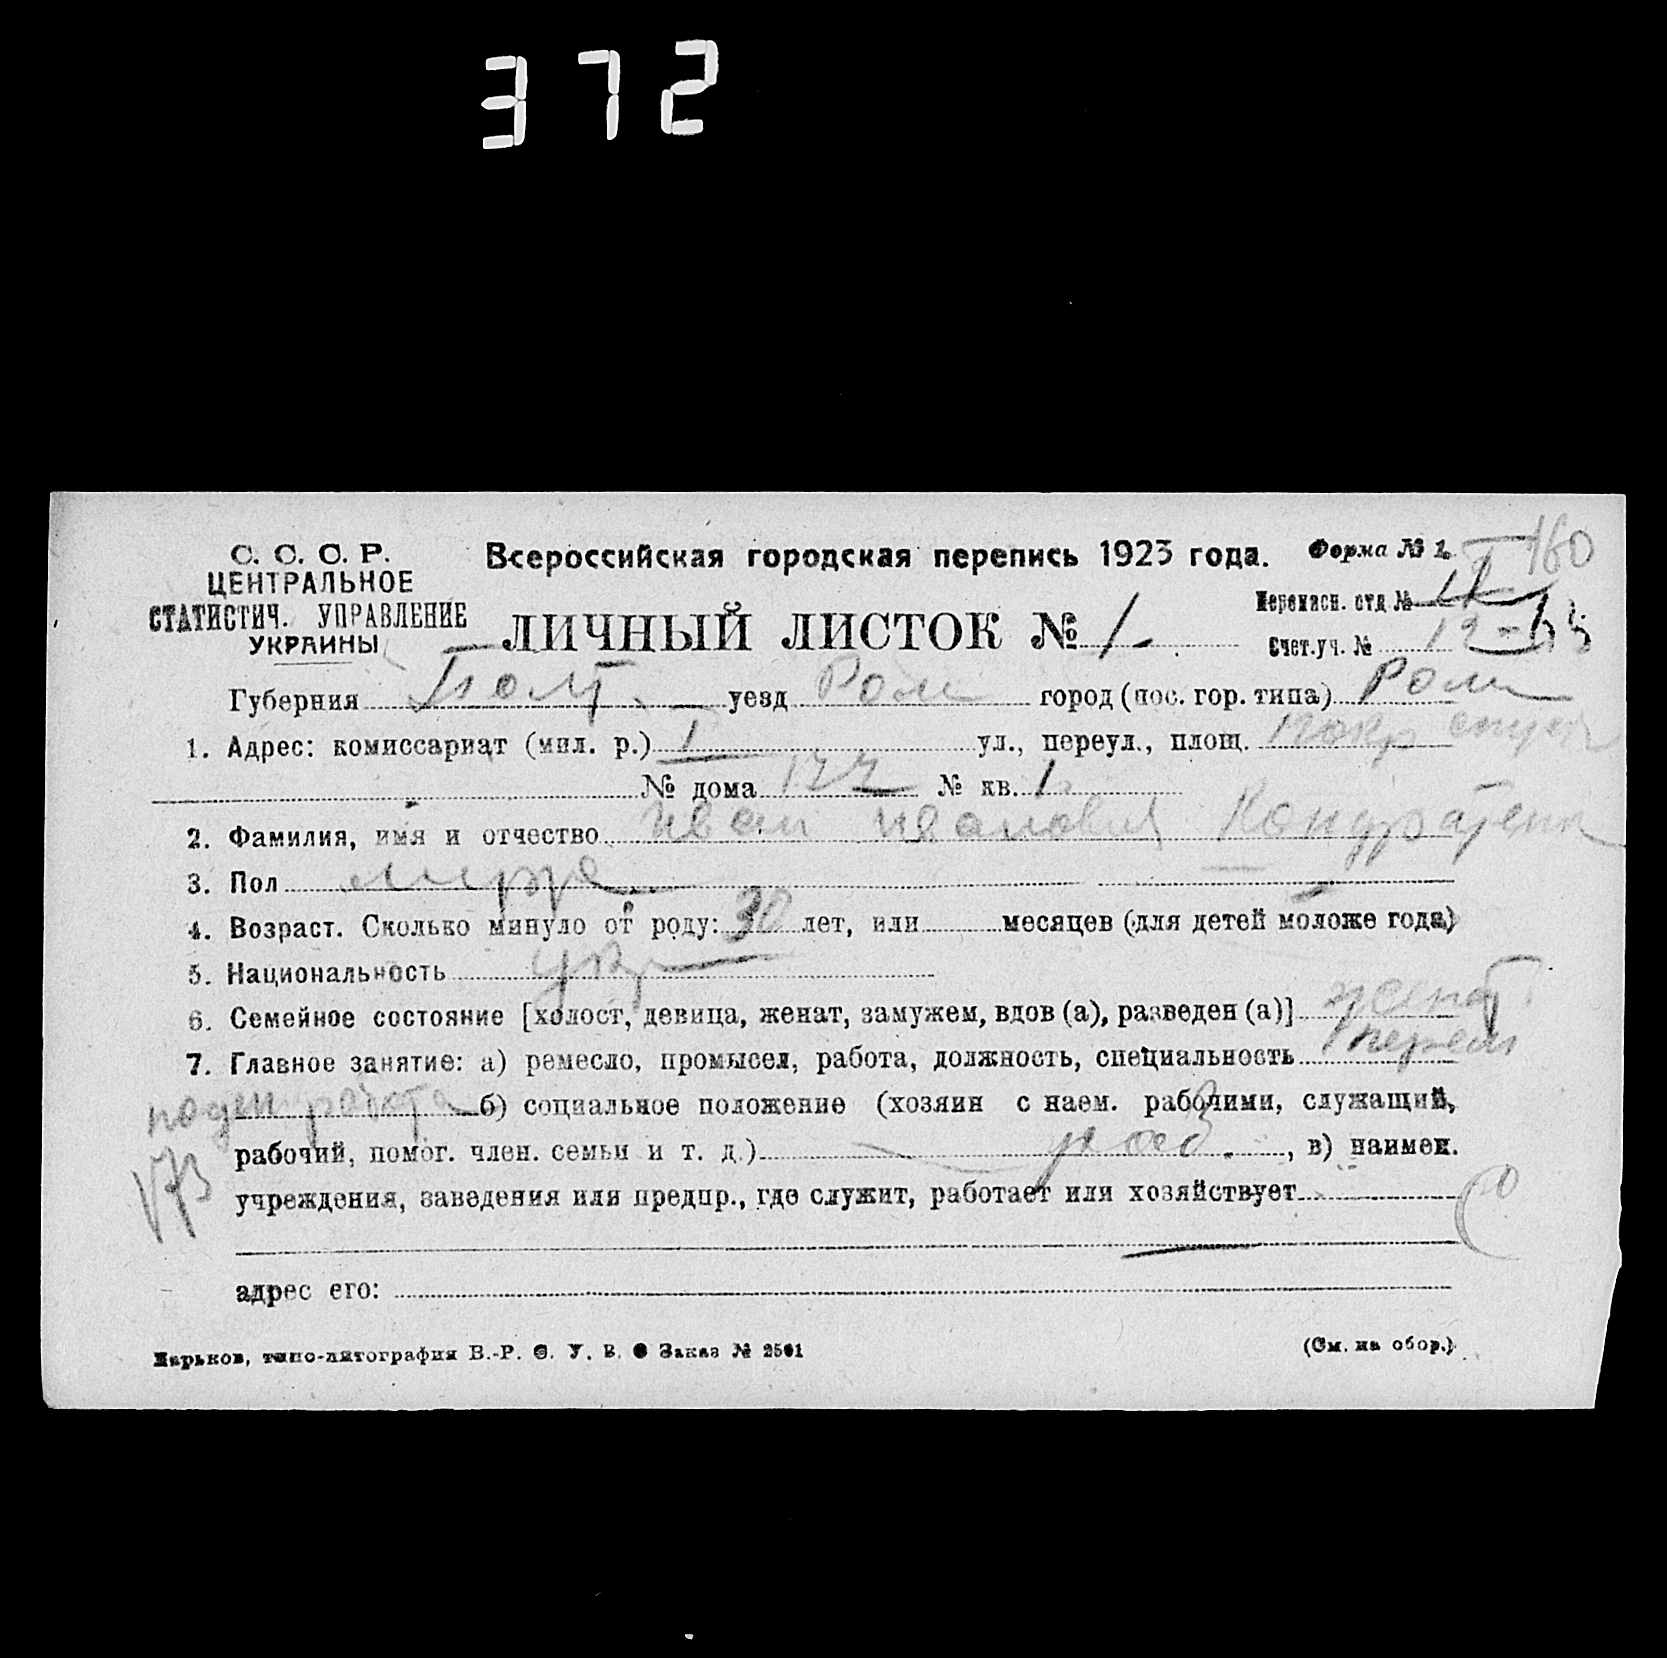 372
С. С. С. Р.
ЦЕНТРАЛЬНОЕ
СТАТИСТИЧ. УПРАВЛЕНИЕ
УКРАИНЫ
Всероссийская городская перепись 1923 года.
Форма № 1. 160
ЛИЧНЫЙ ЛИСТОК № 1.
Переписн. отд №
Счет.уч. № 12
Губерния Полт. уезд Ром город (пос. гор. типа) Ром
1. Адрес: комиссариат (мил. р.) I ул., переул., площ. покр
№ дома 122 № кв. 1
2. Фамилия, имя и отчество Иван Иванович Кондратенк
3. Пол
4. Возраст. Сколько минуло от роду: 30 лет, или месяцев (для детей моложе года)
5. Национальность укр
6. Семейное состояние [холост, девица, женат, замужем, вдов (а), разведен (а)] женат
7. Главное занятие: а) ремесло, промысел, работа, должность, специальность
поден работа б) социальное положение (хозяин с наем. рабочими, служащий,
рабочий, помог. член. семьи и т. д.) раб. , в) наимен.
учреждения, заведения или предпр., где служит, работает или хозяйствует
адрес его:
Харьков, типо-литография В.-Р. С. У. В. Заказ № 2501
(См. на обор.)